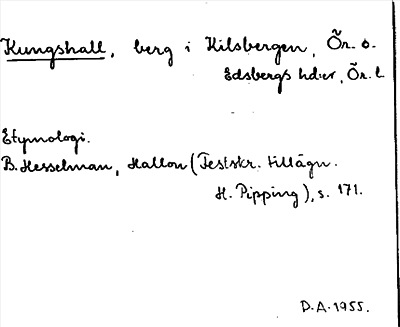 Kungshall, berg i Kilsbergen, Ör. o.
Edsbergs hd:er, Ör. l.
Etymologi.
B. Hesselman, Hallon (Festskr. tillägn.
H. Pipping), s. 171.
D.A. 1955.